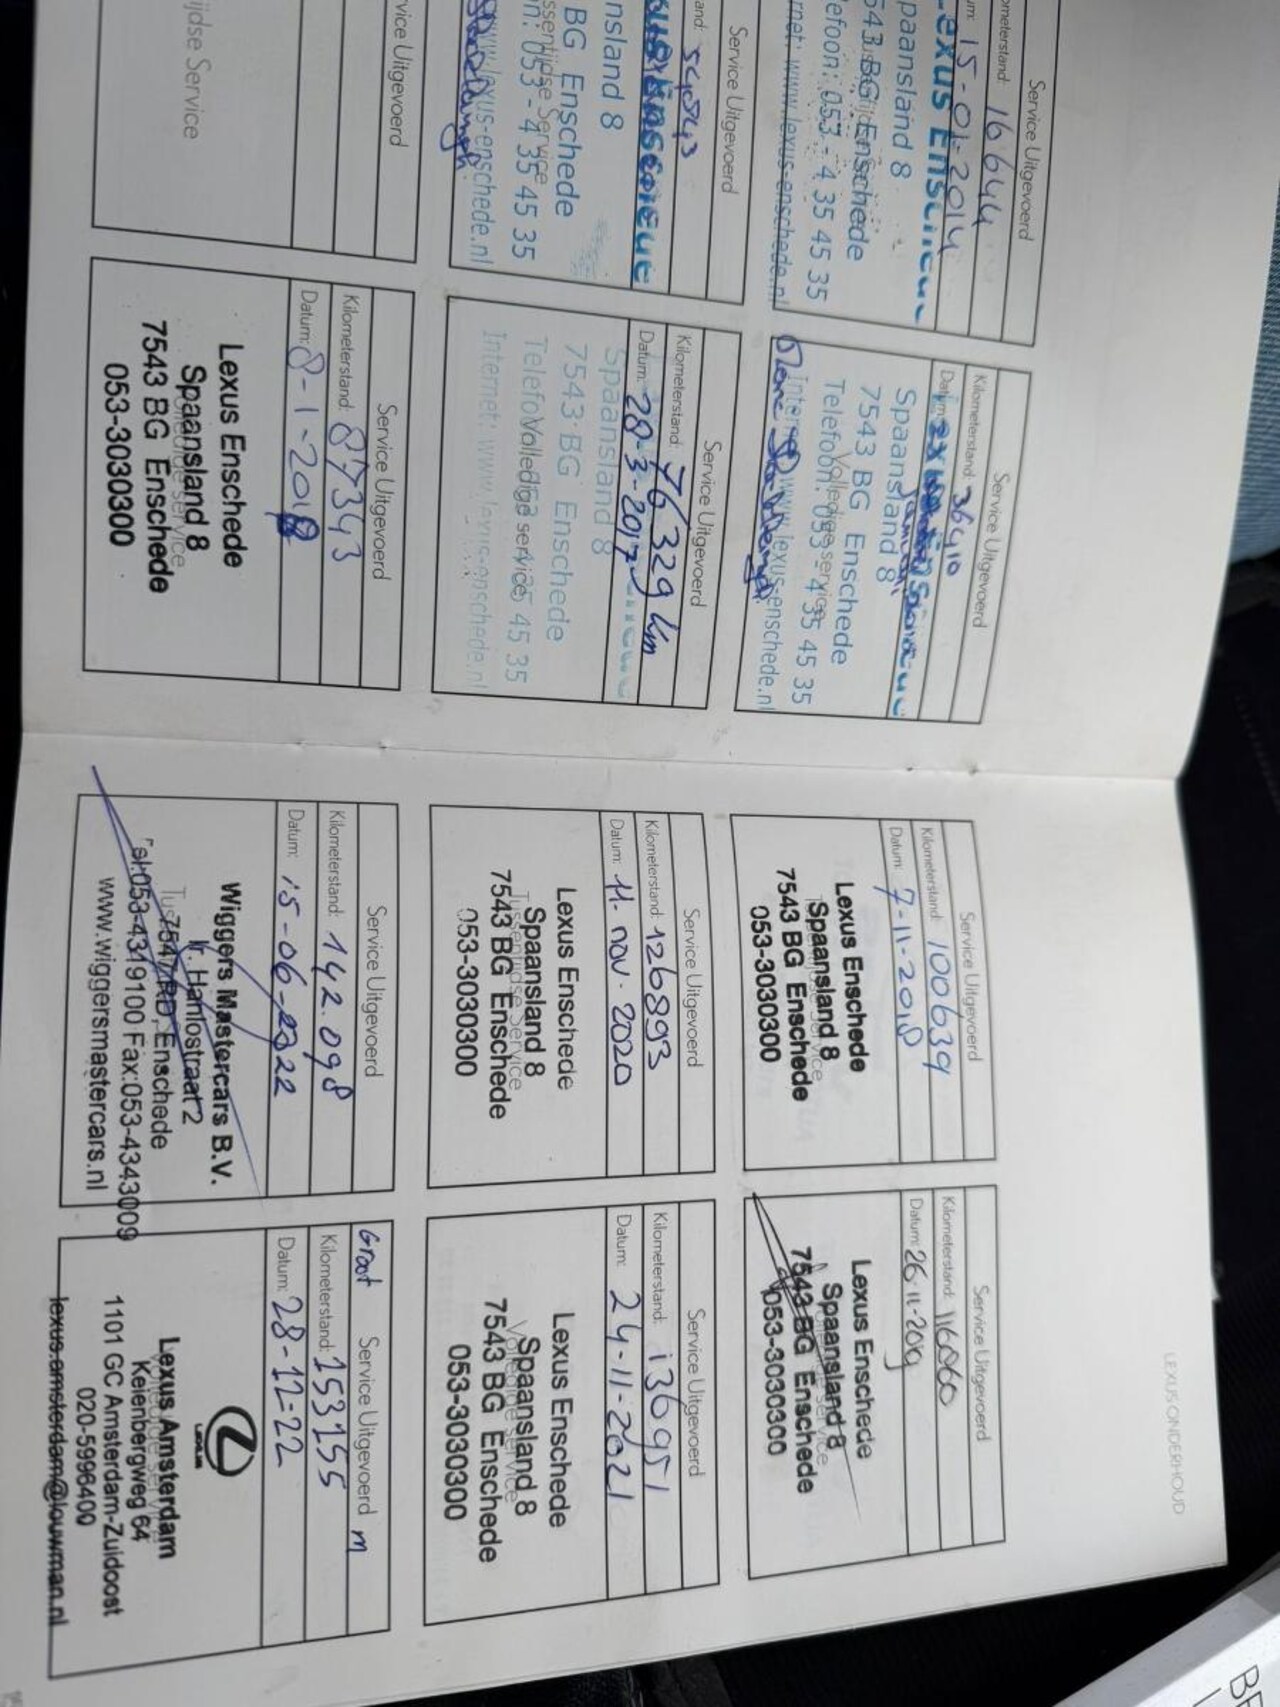 LEXUS ONDERHOUD
Service Uitgevoerd
Kilometerstand: 16644
15-01-2014
Lexus Enschede
Spaansland 8
7543 BG Enschede
Telefoon: 053 - 4 35 45 35
Internet: www.lexus-enschede.nl
Service Uitgevoerd
Kilometerstand: 36410
Datum:
Spaansland 8
7543 BG Enschede
Volledige service
Telefoon: 053 - 4 35 45 35
Internet: www.lexus-enschede.nl
Service Uitgevoerd
Kilometerstand: 100639
Datum: 7-11-2018
Lexus Enschede
Spaansland 8
7543 BG Enschede
053-3030300
Service Uitgevoerd
Kilometerstand: 116060
Datum: 26-11-2019
Lexus Enschede
Spaansland 8
Volledige service
7543 BG Enschede
053-3030300
Service Uitgevoerd
54043
nsland 8
BG Enschede
ssentijdse Service
n: 053 - 4 35 45 35
www.lexus-enschede.nl
Service Uitgevoerd
Kilometerstand: 76329 km
Datum: 28-3-2017
Spaansland 8
7543 BG Enschede
Volledige service
Telefoon 45 35
Internet: www.lexus-enschede.nl
Service Uitgevoerd
Kilometerstand: 126893
Datum: 11. nov. 2020
Lexus Enschede
Spaansland 8
Tussentijdse Service
7543 BG Enschede
053-3030300
Service Uitgevoerd
Kilometerstand: 136951
Datum: 24-11-2021
Lexus Enschede
Spaansland 8
Volledige service
7543 BG Enschede
053-3030300
rvice Uitgevoerd
ijdse Service
Service Uitgevoerd
Kilometerstand: 87343
Datum: 8-1-2018
Lexus Enschede
Spaansland 8
Volledige service
7543 BG Enschede
053-3030300
Service Uitgevoerd
Kilometerstand: 142.098
Datum: 15-06-2022
Wiggers Mastercars B.V.
Hanlostraat 2
7547 RD, Enschede
Tel:053-4319100 Fax:053-4343009
www.wiggersmastercars.nl
Groot Service Uitgevoerd m
Kilometerstand: 153155
Datum: 28-12-22
LEXUS
Lexus Amsterdam
Volledige service
Keienbergweg 64
1101 GC Amsterdam-Zuidoost
020-5996400
lexus.amsterdam@louwman.nl